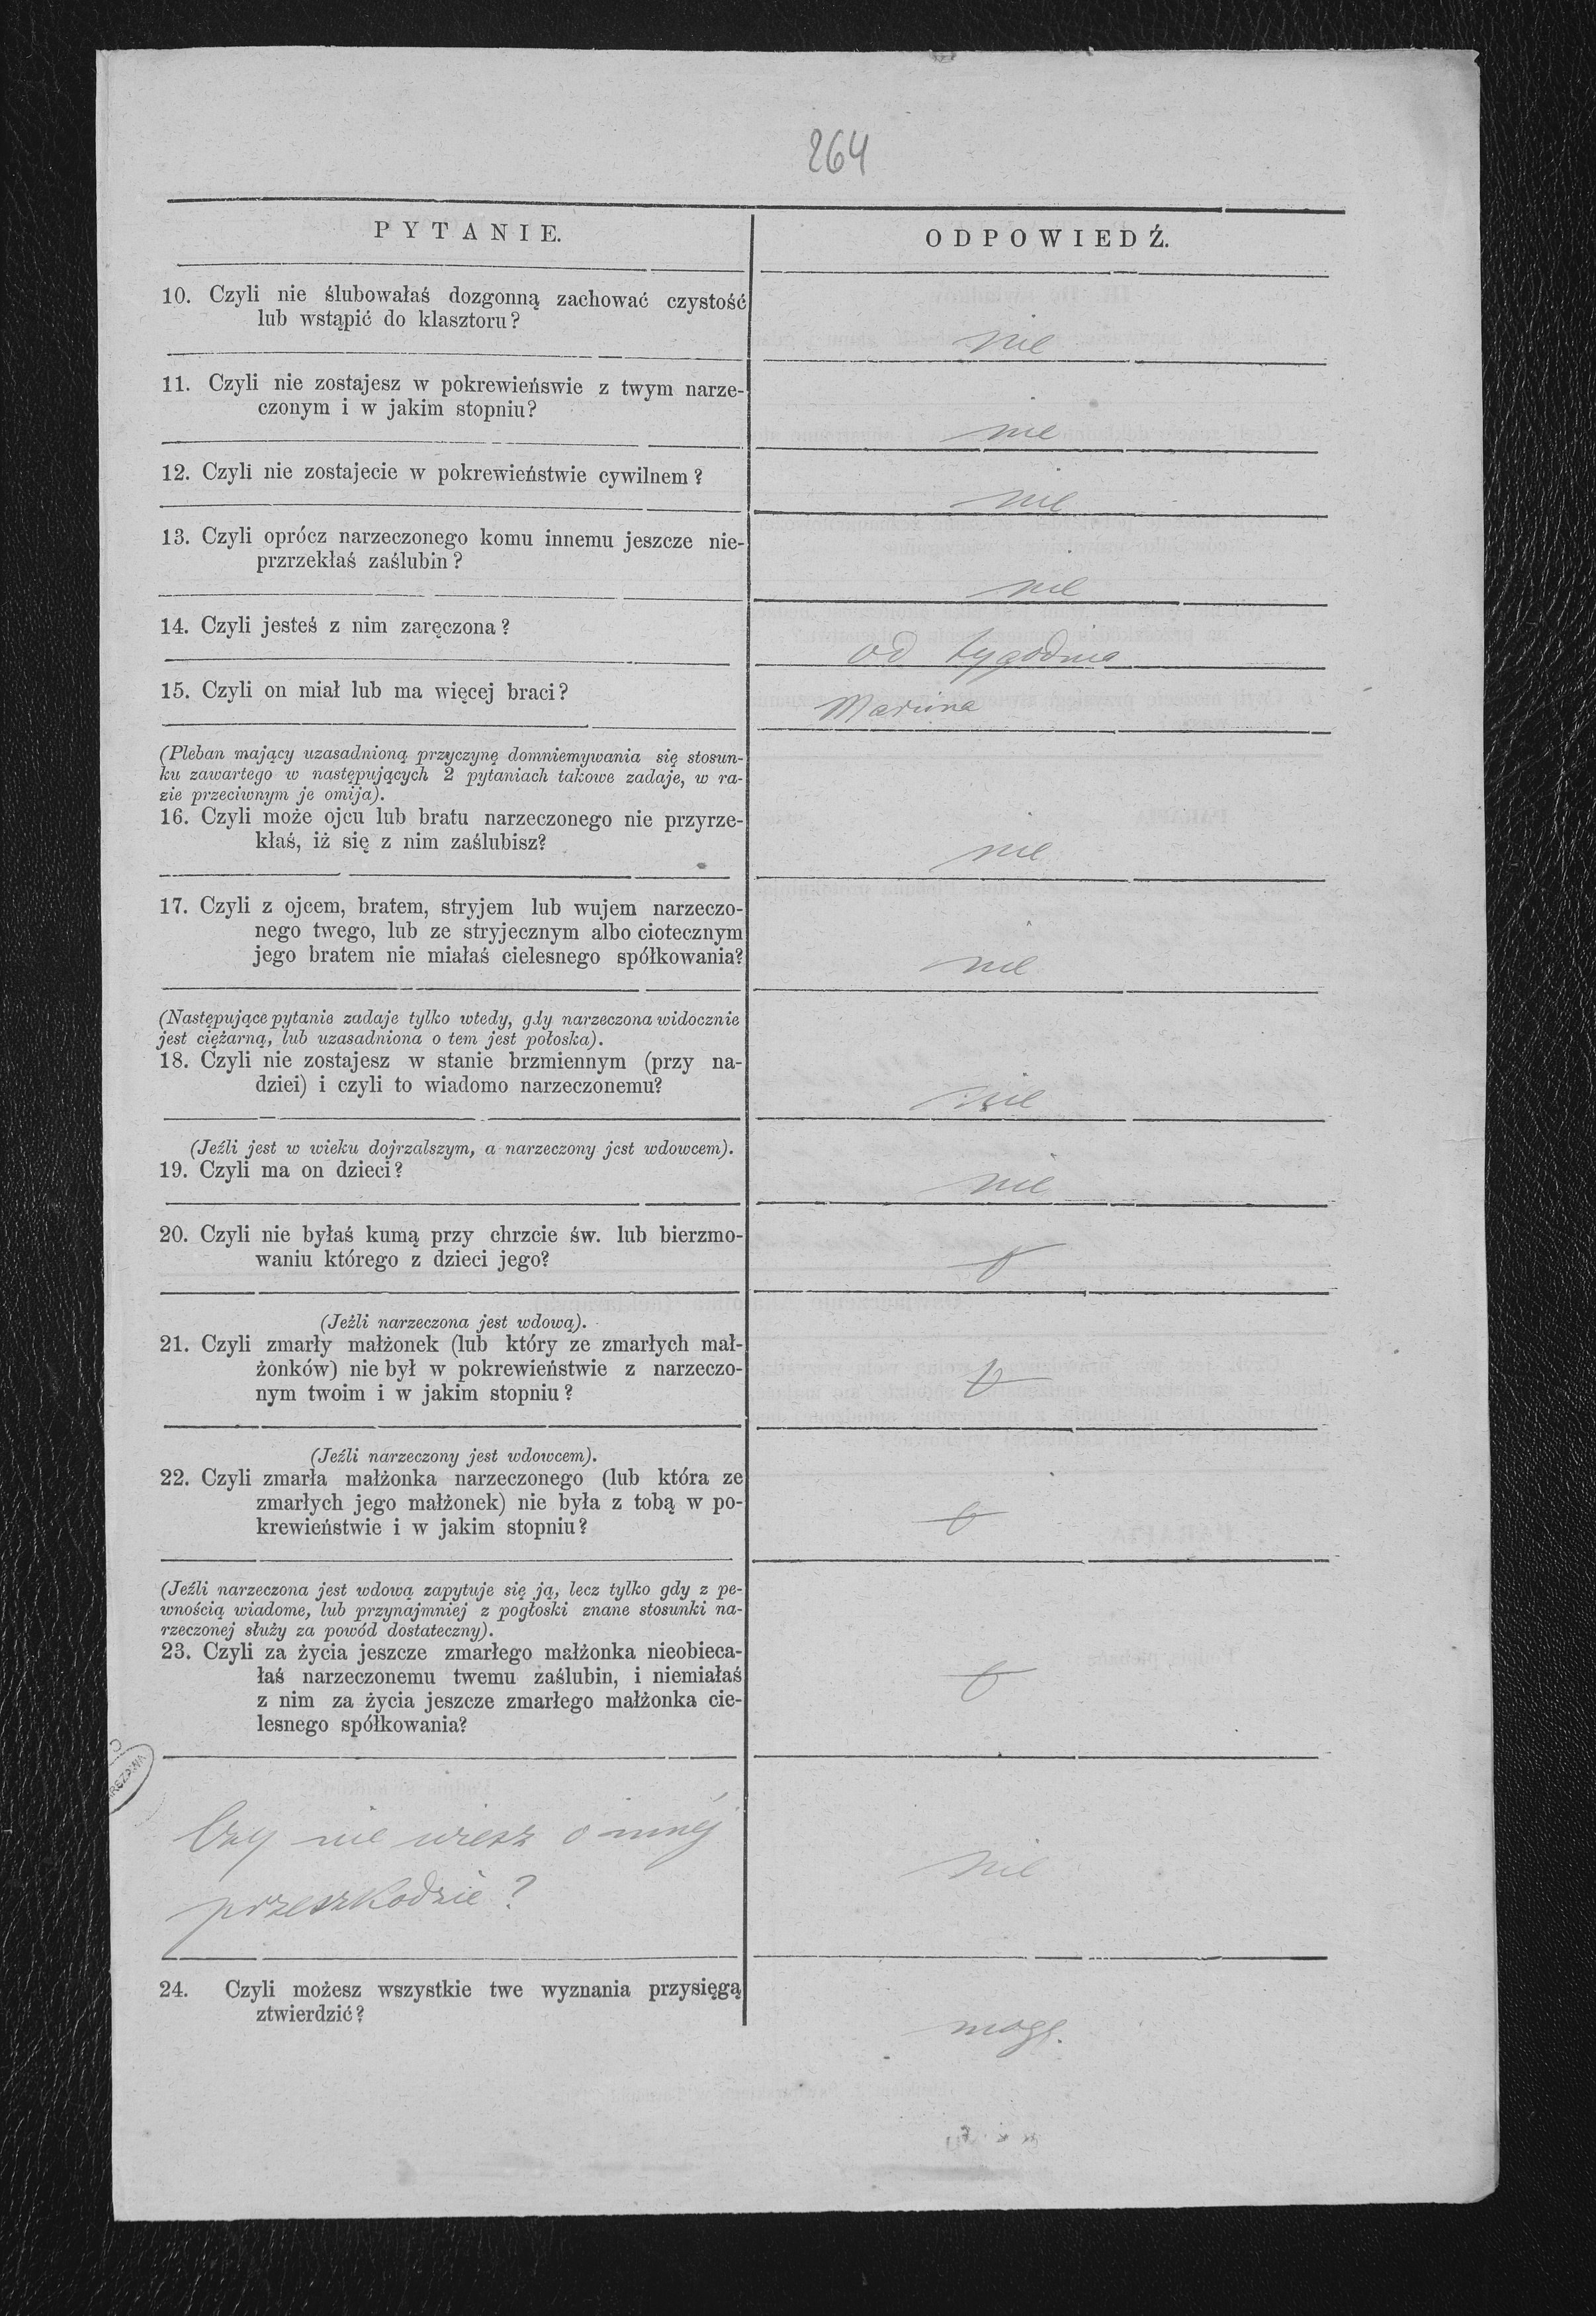 264
PYTANIE.
ODPOWIEDŹ.
10. Czyli nie ślubowałaś dozgonną zachować czystość
lub wstąpić do klasztoru?
nie
11. Czyli nie zostajesz w pokrewieńswie z twym narze-
czonym i w jakim stopniu?
nie
12. Czyli nie zostajecie w pokrewieństwie cywilnem?
nie
13. Czyli oprócz narzeczonego komu innemu jeszcze nie-
przrzekłaś zaślubin?
nie
14. Czyli jesteś z nim zaręczona?
od tygodnia
15. Czyli on miał lub ma więcej braci?
(Pleban mający uzasadnioną przyczynę domniemywania się stosun-
ku zawartego w następujących 2 pytaniach takowe zadaje, w ra-
zie przeciwnym je omija).
16. Czyli może ojcu lub bratu narzeczonego nie przyrze-
kłaś, iż się z nim zaślubisz?
nie
17. Czyli z ojcem, bratem, stryjem lub wujem narzeczo-
nego twego, lub ze stryjecznym albo ciotecznym
jego bratem nie miałaś cielesnego spółkowania?
nie
(Następujące pytanie zadaje tylko wtedy, gdy narzeczona widocznie
jest ciężarną, lub uzasadniona o tem jest połoska).
18. Czyli nie zostajesz w stanie brzmiennym (przy na-
dziei) i czyli to wiadomo narzeczonemu?
nie
(Jeźli jest w wieku dojrzalszym, a narzeczony jest wdowcem).
19. Czyli ma on dzieci?
nie
20. Czyli nie byłaś kumą przy chrzcie św. lub bierzmo-
waniu którego z dzieci jego?
(Jeźli narzeczona jest wdową).
21. Czyli zmarły małżonek (lub który ze zmarłych mał-
żonków) nie był w pokrewieństwie z narzeczo-
nym twoim i w jakim stopniu?
(Jeźli narzeczony jest wdowcem).
22. Czyli zmarła małżonka narzeczonego (lub która ze
zmarłych jego małżonek) nie była z tobą w po-
krewieństwie i w jakim stopniu?
(Jeźli narzeczona jest wdową zapytuje się ją, lecz tylko gdy z pe-
wnością wiadome, lub przynajmniej z pogłoski znane stosunki na-
rzeczonej służy za powód dostateczny).
23. Czyli za życia jeszcze zmarłego małżonka nieobieca-
łaś narzeczonemu twemu zaślubin, i niemiałaś
z nim za życia jeszcze zmarłego małżonka cie-
lesnego spółkowania?
Czy nie wiesz o innéj
przeszkodzie?
nie
24. Czyli możesz wszystkie twe wyznania przysięgą
ztwierdzić?
mogę.